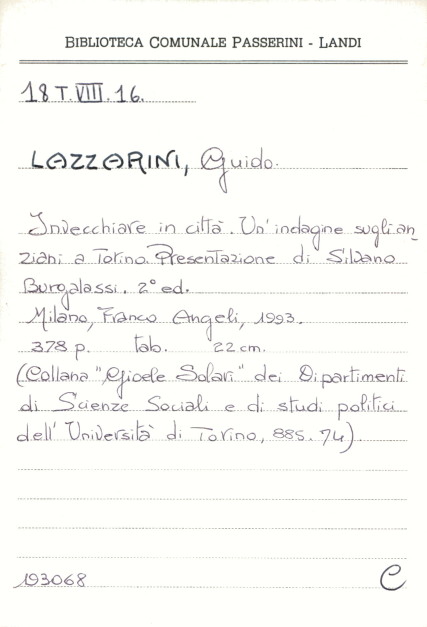 BIBLIOTECA COMUNALE PASSERINI - LANDI
18 T. VIII. 16.
LAZZARINI, Guido.
Invecchiare in città. Un' indagine sugli an_
ziani a Torino. Presentazione di Silvano
Burgalassi. 2° ed.
Milano, Franco Angeli, 1993.
378 p. tab. 22 cm.
(Collana "Gioele Solari" dei Dipartimenti
di Scienze Sociali e di studi politici
dell' Università di Torino, 885. 74).
193068 C